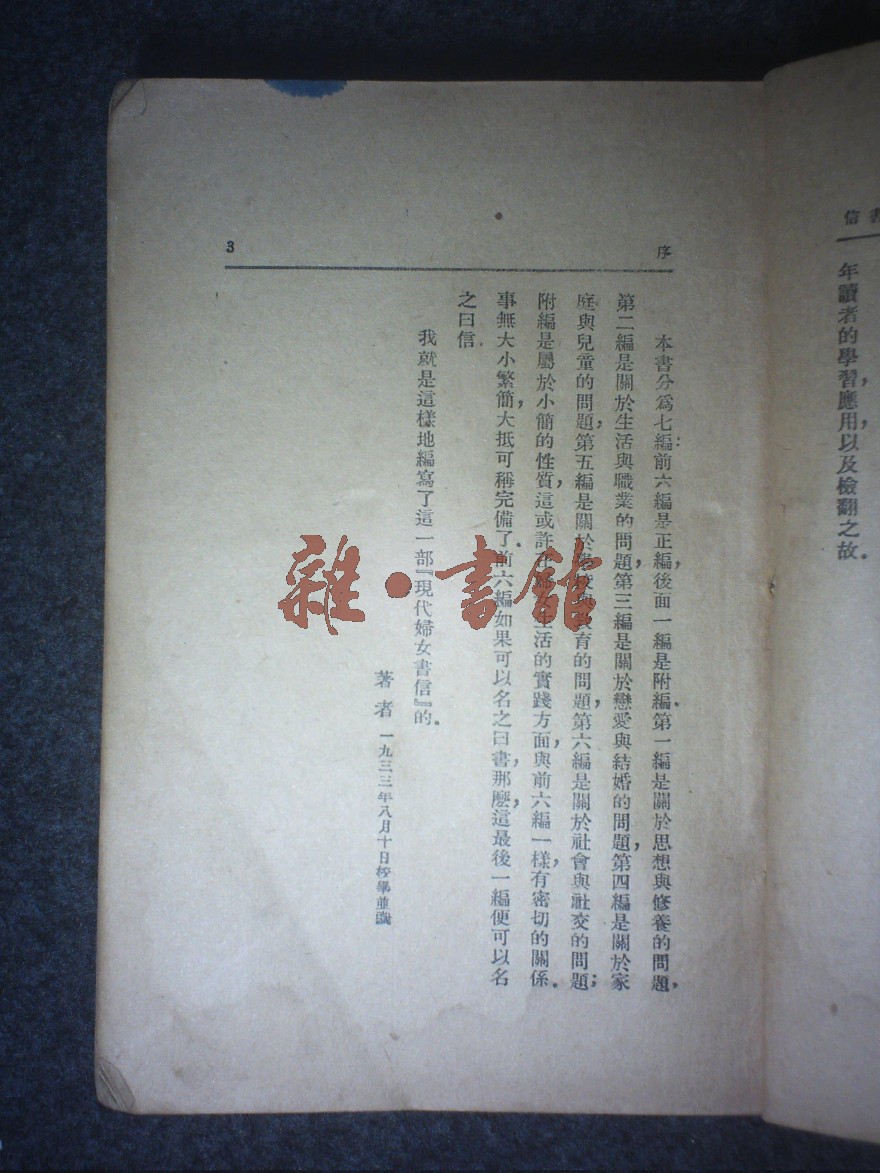 書信
年讀者的學習，應用，以及檢翻之故．
序
3
本書分爲七編：前六編是正編，後面一編是附編．第一編是關於思想與修養的問題，
第二編是關於生活與職業的問題，第三編是關於戀愛與結婚的問題，第四編是關於家
庭與兒童的問題，第五編是關於教育的問題，第六編是關於社會與社交的問題；
附編是屬於小簡的性質，這或許在生活的實踐方面，與前六編一樣，有密切的關係．
事無大小繁簡，大抵可稱完備了．前六編如果可以名之曰書，那麽，這最後一編便可以名
之曰信．
我就是這樣地編寫了這一部『現代婦女書信』的．
著者 一九三三年八月十日校畢並識
雜·書館